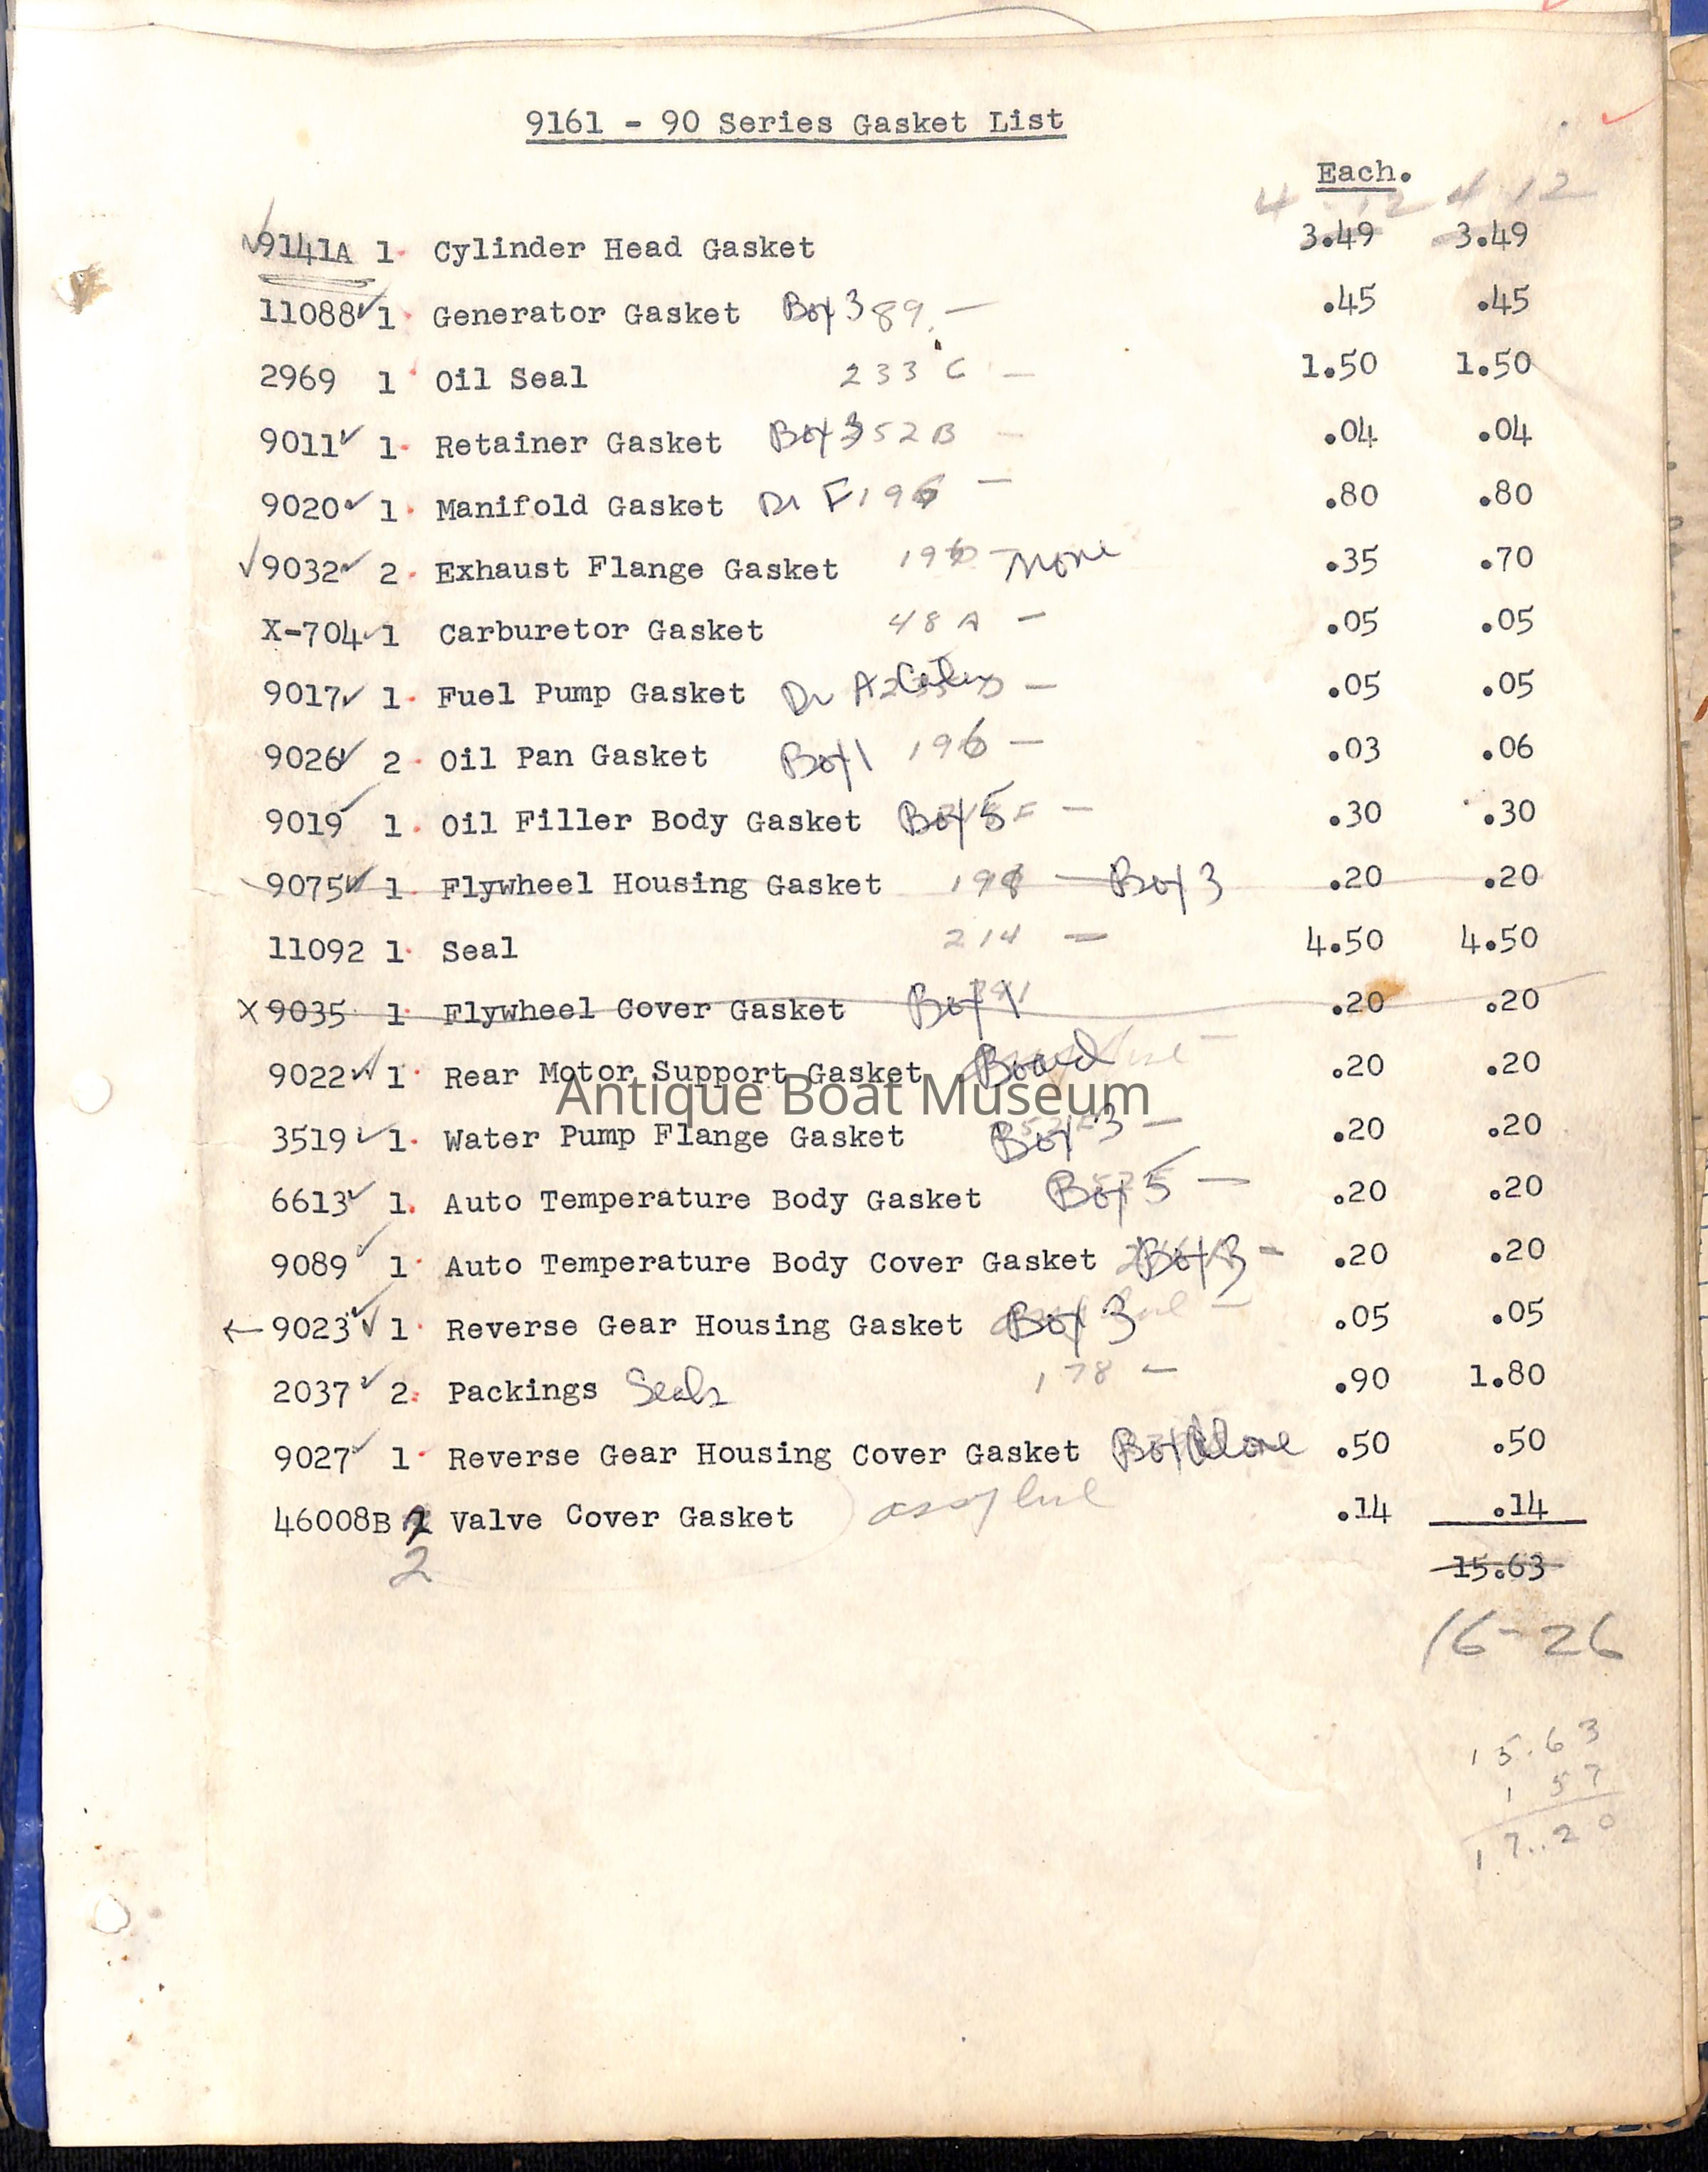 9161 - 90 Series Gasket List
Each.
4.12 4 12
9141A 1 Cylinder Head Gasket 3.49 3.49
11088 1 Generator Gasket Box 3 89. — .45 .45
2969 1 Oil Seal 233 C — 1.50 1.50
9011 1 Retainer Gasket Box 3 52 B — .04 .04
9020 1 Manifold Gasket Dr F 196 — .80 .80
9032 2 Exhaust Flange Gasket None .35 .70
X-704 1 Carburetor Gasket 48 A — .05 .05
9017 1 Fuel Pump Gasket Dr A — .05 .05
9026 2 Oil Pan Gasket Box 1 196 — .03 .06
9019 1 Oil Filler Body Gasket Box 5 — .30 .30
9075 1 Flywheel Housing Gasket 198 — Box 3 .20 .20
11092 1 Seal 214 — 4.50 4.50
X 9035 1 Flywheel Cover Gasket Box 1 .20 .20
9022 1 Rear Motor Support Gasket Board — .20 .20
Antique Boat Museum
3519 1 Water Pump Flange Gasket Box 3 — .20 .20
6613 1 Auto Temperature Body Gasket Box 5 — .20 .20
9089 1 Auto Temperature Body Cover Gasket Box 3 — .20 .20
← 9023 1 Reverse Gear Housing Gasket Box 3 — .05 .05
2037 2 Packings Seals 178 — .90 1.80
9027 1 Reverse Gear Housing Cover Gasket Box None .50 .50
46008B 2 Valve Cover Gasket .14 .14
2
15.63
16-26
15.63
1 57
17.20